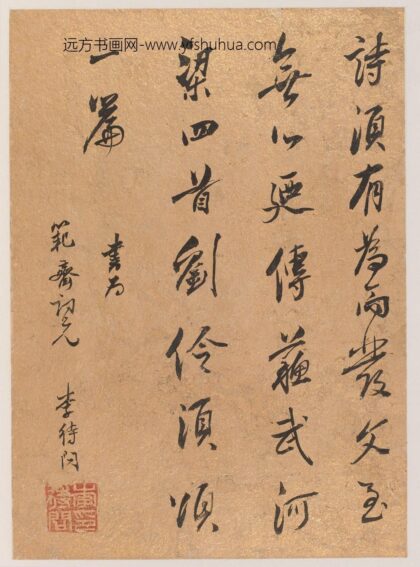 远方书画网-www.yfshuhua.com
詩須有為而發文至
無心更傳蘇武河
梁四首劉伶須頌
一篇
書為
範齋詞兄
李待問
李待問印